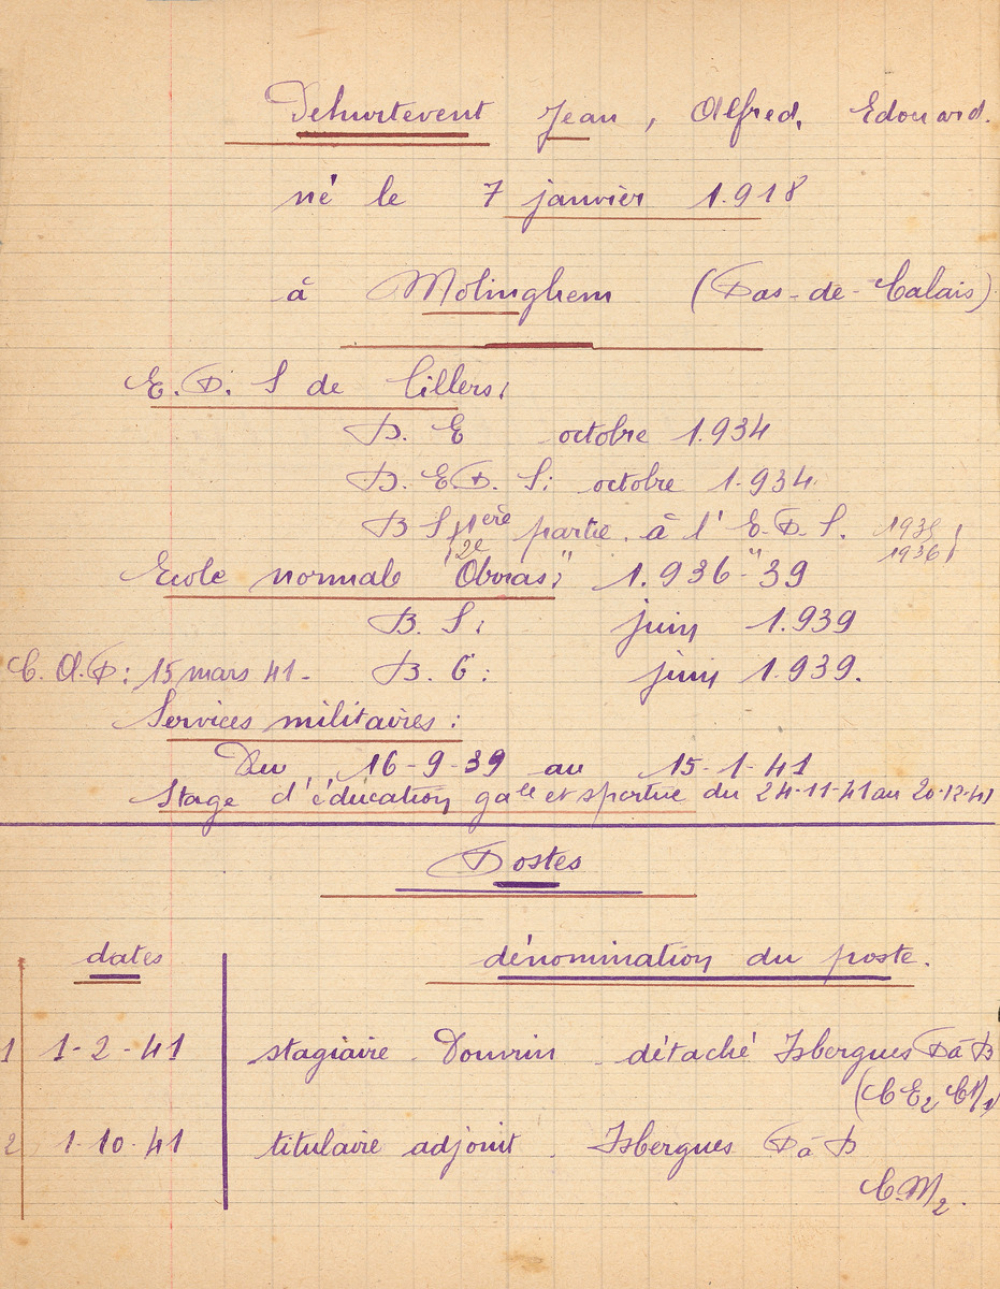 Dehurtevent Jean, Alfred, Edouard.
né le 7 janvier 1.918
à Molinghem (Pas-de-Calais)
E.P.S de Lillers:
B.E octobre 1.934
B.E.P.S: octobre 1.934
B S 1ère partie à l'E.P.S. 1935
2e " " 1936
Ecole normale d'Arras: 1.936-39
B.S: juin 1.939
C.A.P: 15 mars 41. B.C: juin 1.939.
Services militaires:
Du 16-9-39 au 15-1-41
Stage d'éducation gale et sportive du 24-11-41 au 20-12-41
Postes
dates dénomination du poste.
1 1-2-41 stagiaire Douvrin détaché Isbergues P à P
(CE2 CM1)
2 1-10-41 titulaire adjoint Isbergues P à P
C.M2.